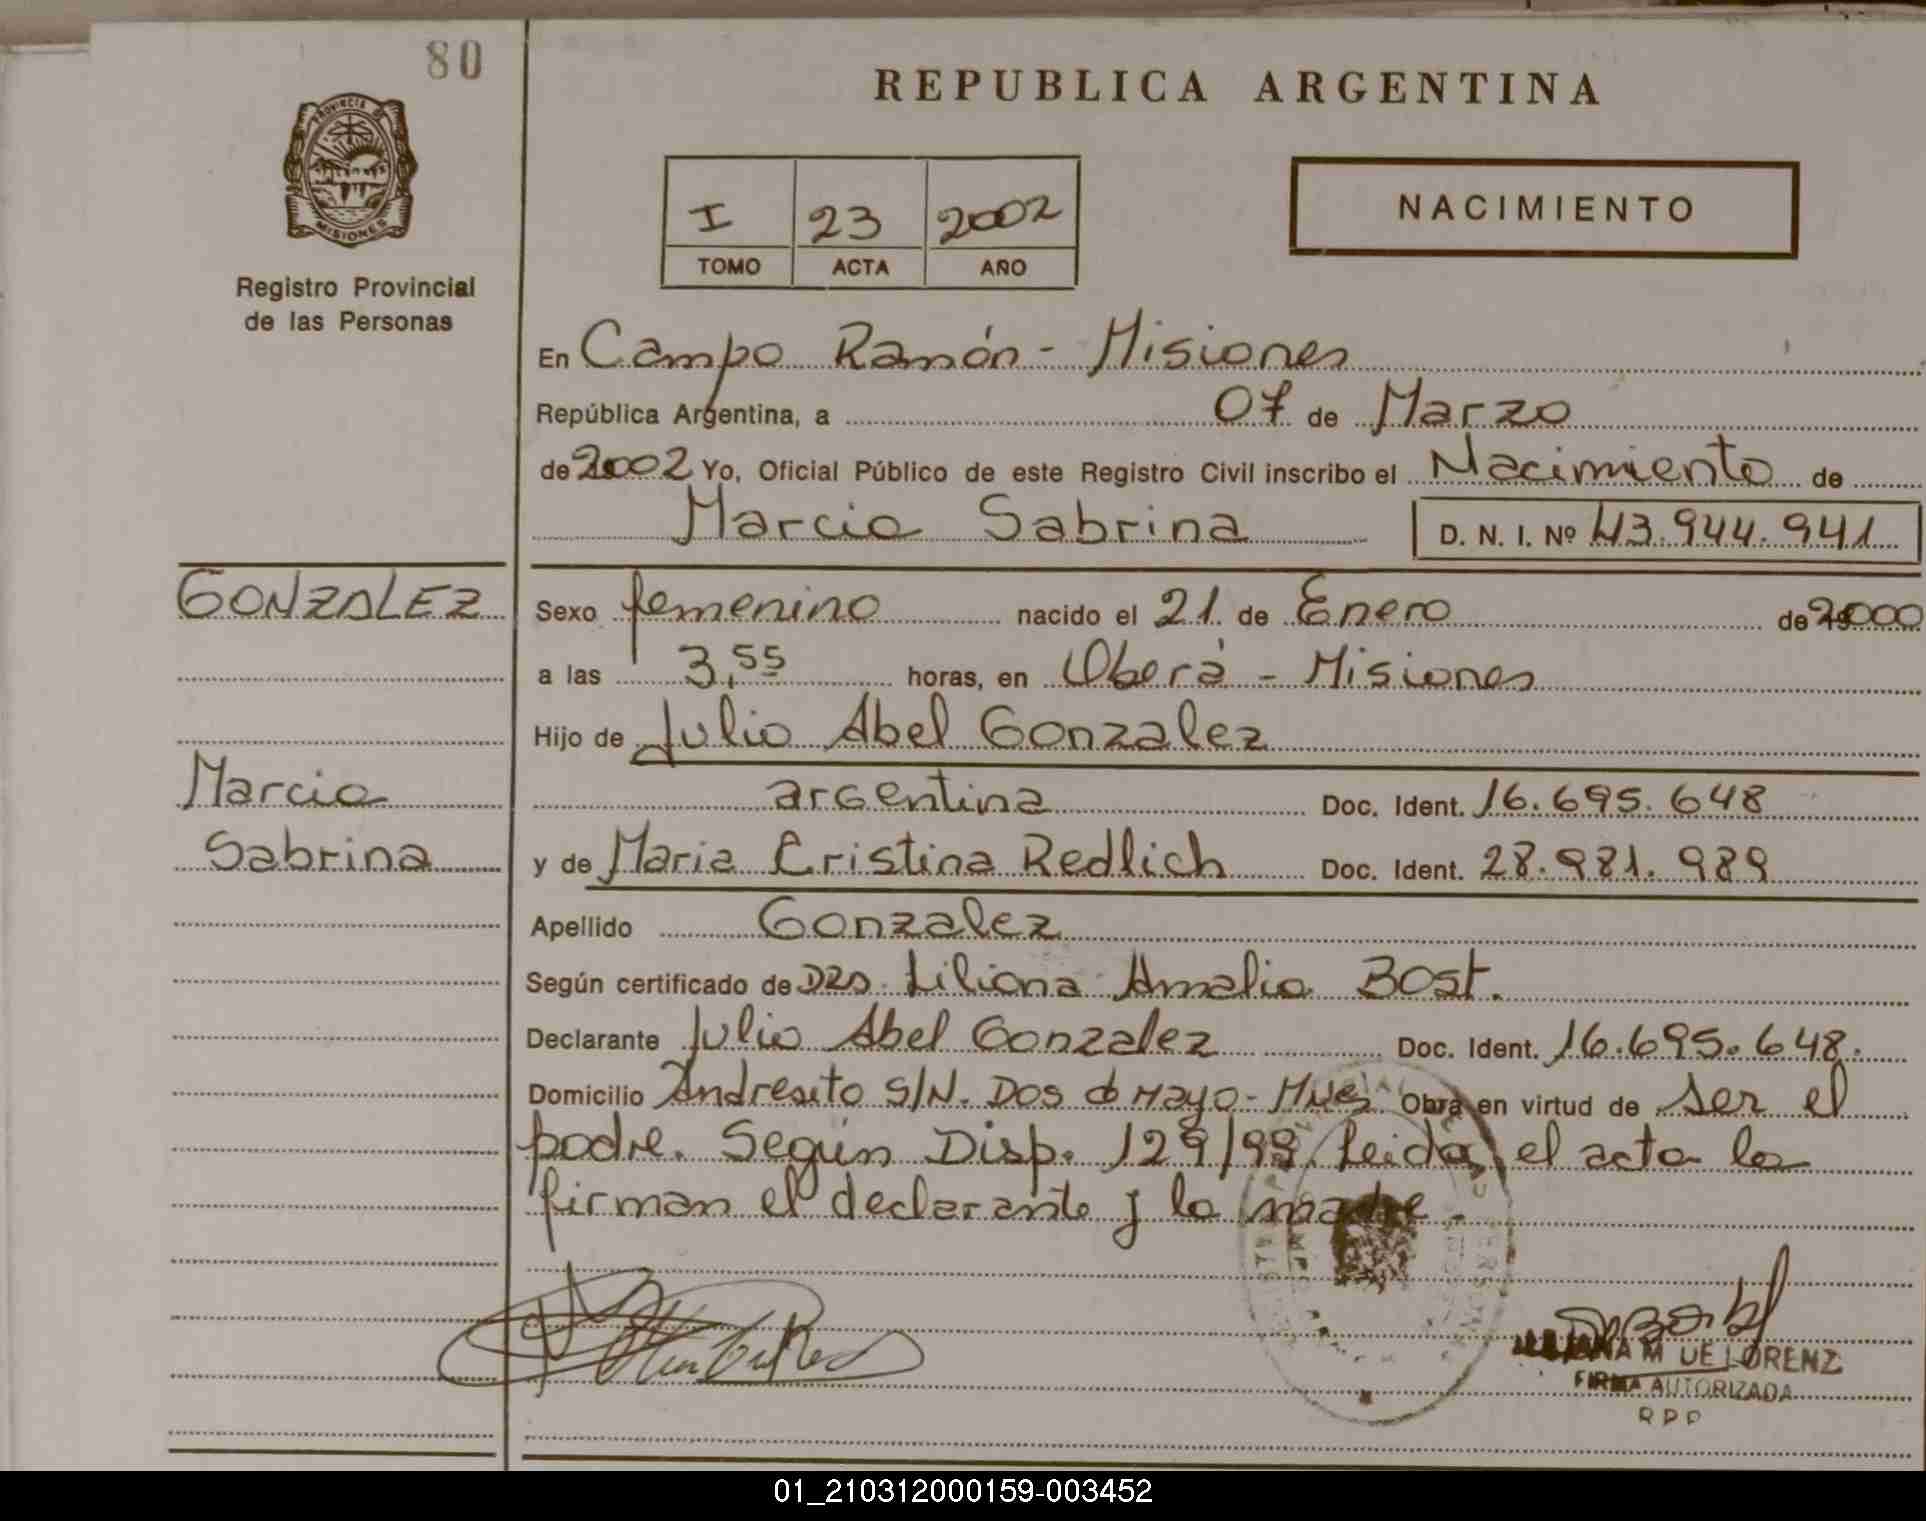 80
PROVINCIA DE
MISIONES
Registro Provincial
de las Personas
REPUBLICA ARGENTINA
I 23 2002
TOMO ACTA AÑO
NACIMIENTO
En Campo Ramón - Misiones
República Argentina, a 07 de Marzo
de 2002 Yo, Oficial Público de este Registro Civil inscribo el Nacimiento de
Marcia Sabrina D. N. I. Nº 43.944.941
GONZALEZ
Marcia
Sabrina
Sexo femenino nacido el 21 de Enero de 2000
a las 3,55 horas, en Oberá - Misiones
Hijo de Julio Abel Gonzalez
argentina Doc. Ident. 16.695.648
y de Maria Cristina Redlich Doc. Ident. 28.981.989
Apellido Gonzalez
Según certificado de Dra. Liliana Amalia Bost.
Declarante Julio Abel Gonzalez Doc. Ident. 16.695.648.
Domicilio Andresito S/N. Dos de Mayo - Mnes Obra en virtud de ser el
padre. Según Disp. 129/99. Leida el acta la
firman el declarante y la madre.
M DE LORENZ
FIRMA AUTORIZADA
R P P
01_210312000159-003452